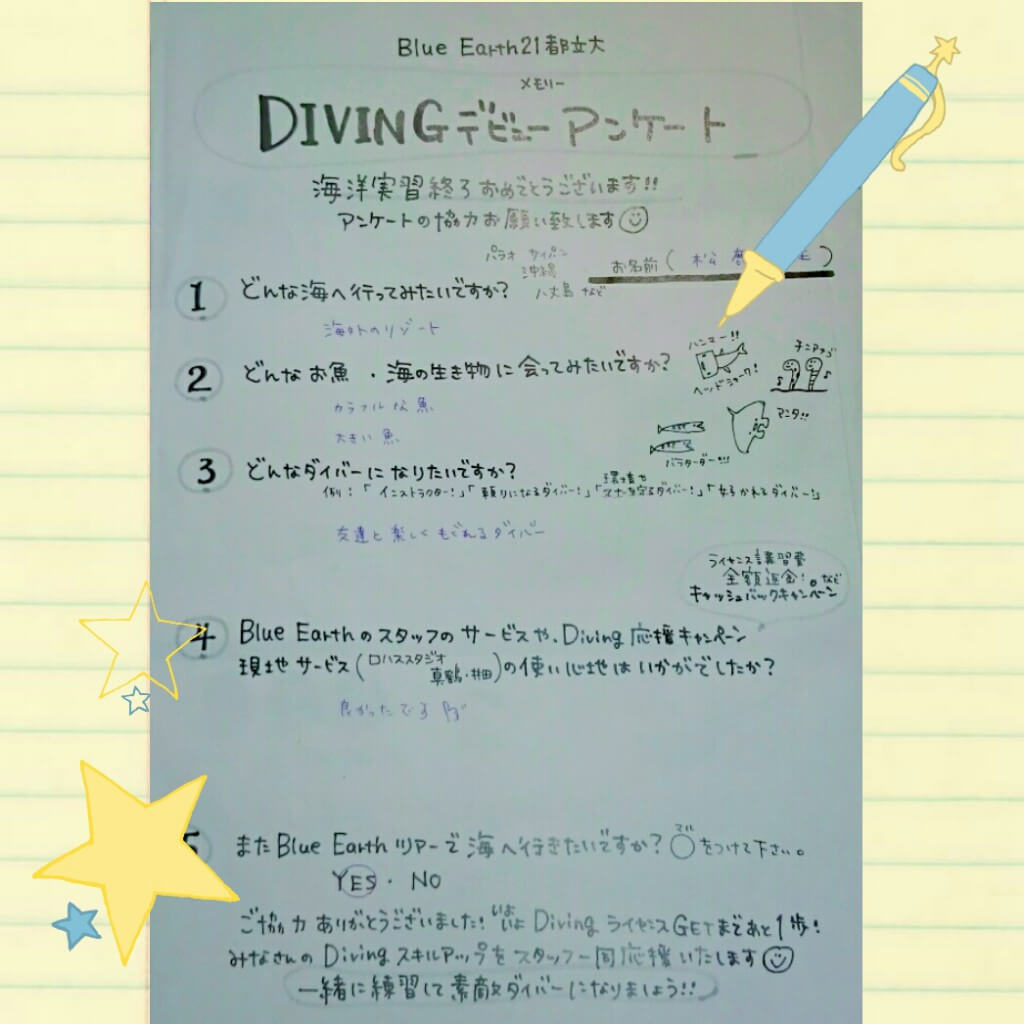 Blue Earth21都立大
メモリー
DIVINGデビューアンケート
海洋実習終了おめでとうございます!!
アンケートの協力お願い致します
お名前( 松
パラオ サイパン
沖縄
八丈島 など
1 どんな海へ行ってみたいですか?
海外のリゾート
2 どんなお魚・海の生き物に会ってみたいですか?
カラフルな魚
大きい魚
ハンマー!!
ヘッドシャーク!
チンアナゴ
マンタ!!
バラクーダー!!!
3 どんなダイバーになりたいですか?
例:「インストラクター!」「頼りになるダイバー!」「環境や を守るダイバー!」「 ダイバー!」
友達と楽しくもぐれるダイバー
ライセンス講習費
全額返金!など
キャッシュバックキャンペーン
4 Blue Earthのスタッフのサービスや、Diving応援キャンペーン
現地サービス(ロハススタジオ 真鶴・井田)の使い心地はいかがでしたか?
良かったです
5 またBlue Earthツアーで海へ行きたいですか?○をつけて下さい。
YES・NO
ご協力ありがとうございました!いよいよDivingライセンスGETまであと1歩!
みなさんのDivingスキルアップをスタッフ一同応援いたします
一緒に練習して素敵ダイバーになりましょう!!